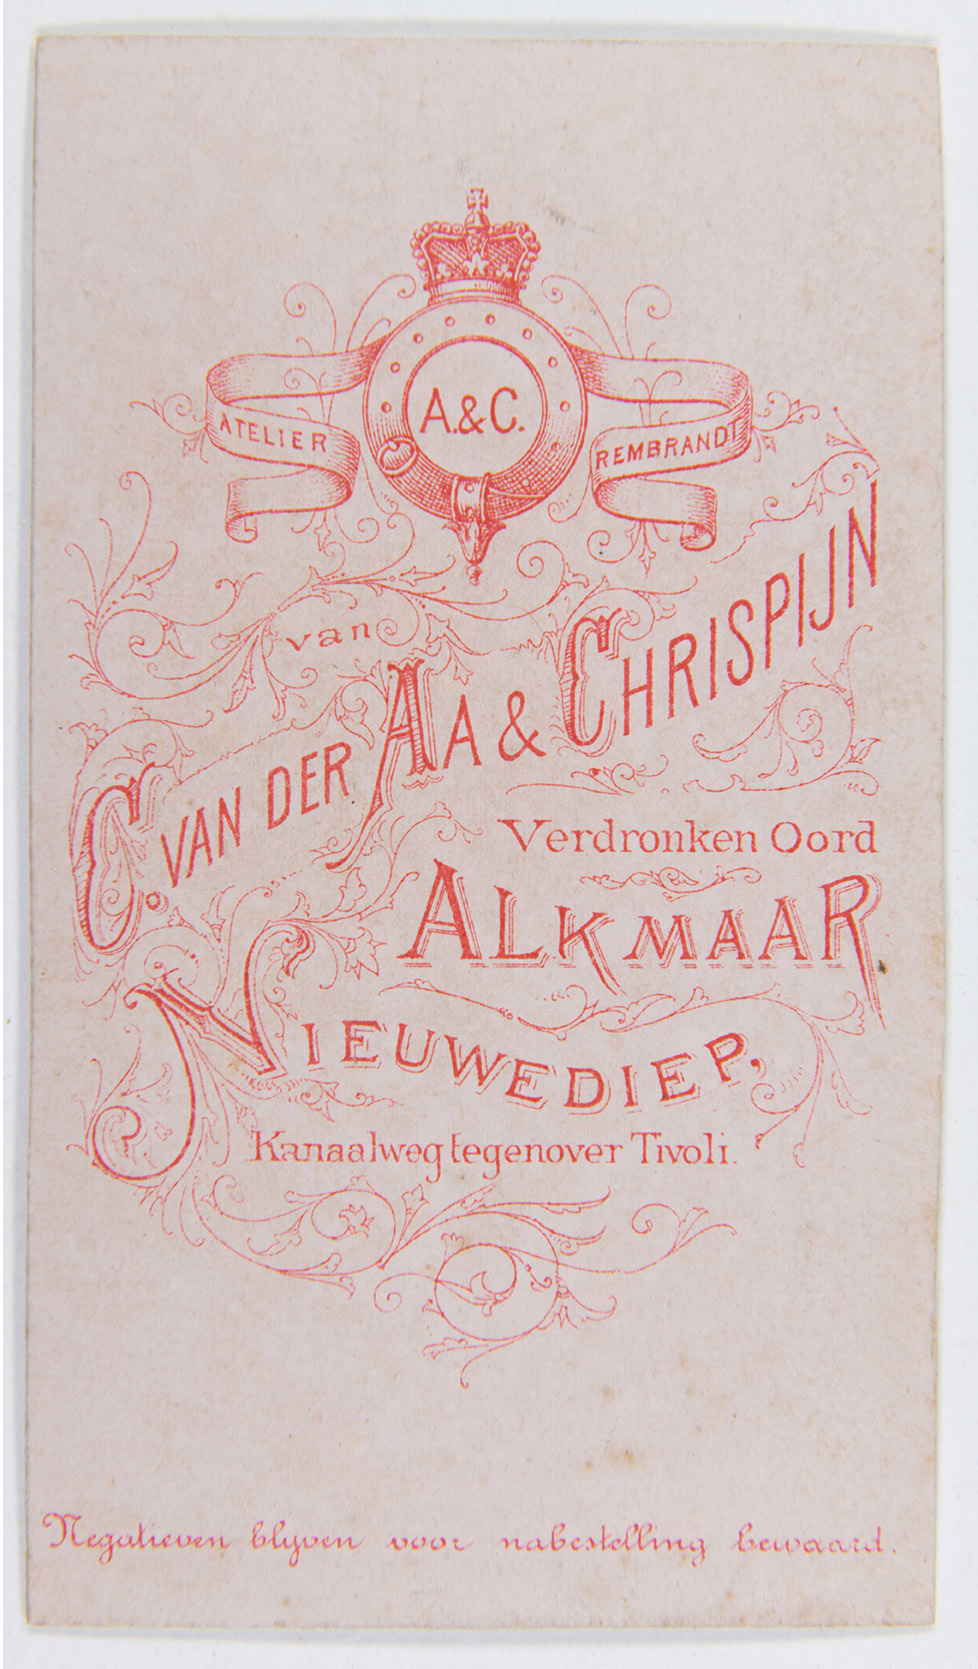 A.&C.
ATELIER REMBRANDT
van
C. VAN DER AA & CHRISPIJN
Verdronken Oord
ALKMAAR
NIEUWEDIEP,
Kanaalweg tegenover Tivoli.
Negatieven blyven voor nabestelling bewaard.